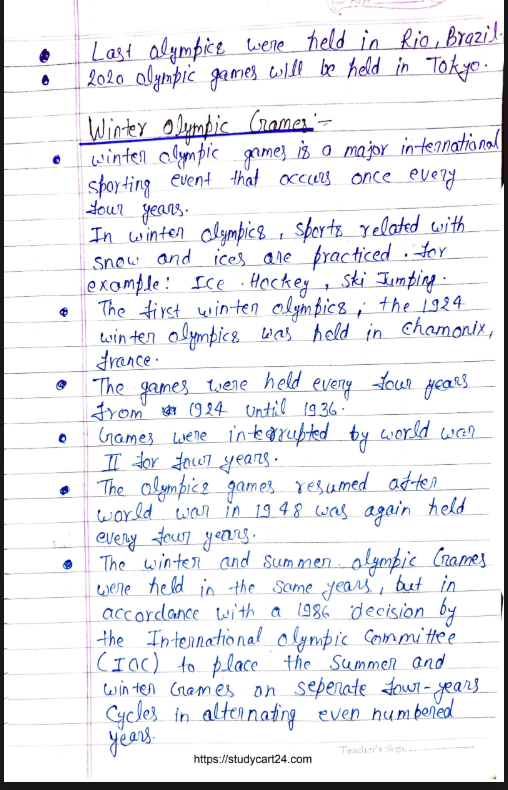 Last olympics were held in Rio, Brazil.
2020 olympic games will be held in Tokyo.
Winter Olympic Games:-
winter olympic games is a major international
sporting event that occurs once every
four years.
In winter olympics, sports related with
snow and ices are practiced. for
example: Ice Hockey, Ski Jumping.
The first winter olympics, the 1924
winter olympics was held in Chamonix,
france.
The games were held every four years
from 1924 until 1936.
Games were interrupted by world war
II for four years.
The olympics games resumed after
world war in 1948 was again held
every four years.
The winter and summer olympic Games
were held in the same years, but in
accordance with a 1986 decision by
the International olympic Committee
(IOC) to place the Summer and
winter Games on seperate four-years
Cycles in alternating even numbered
years.
Teacher's Sign
https://studycart24.com